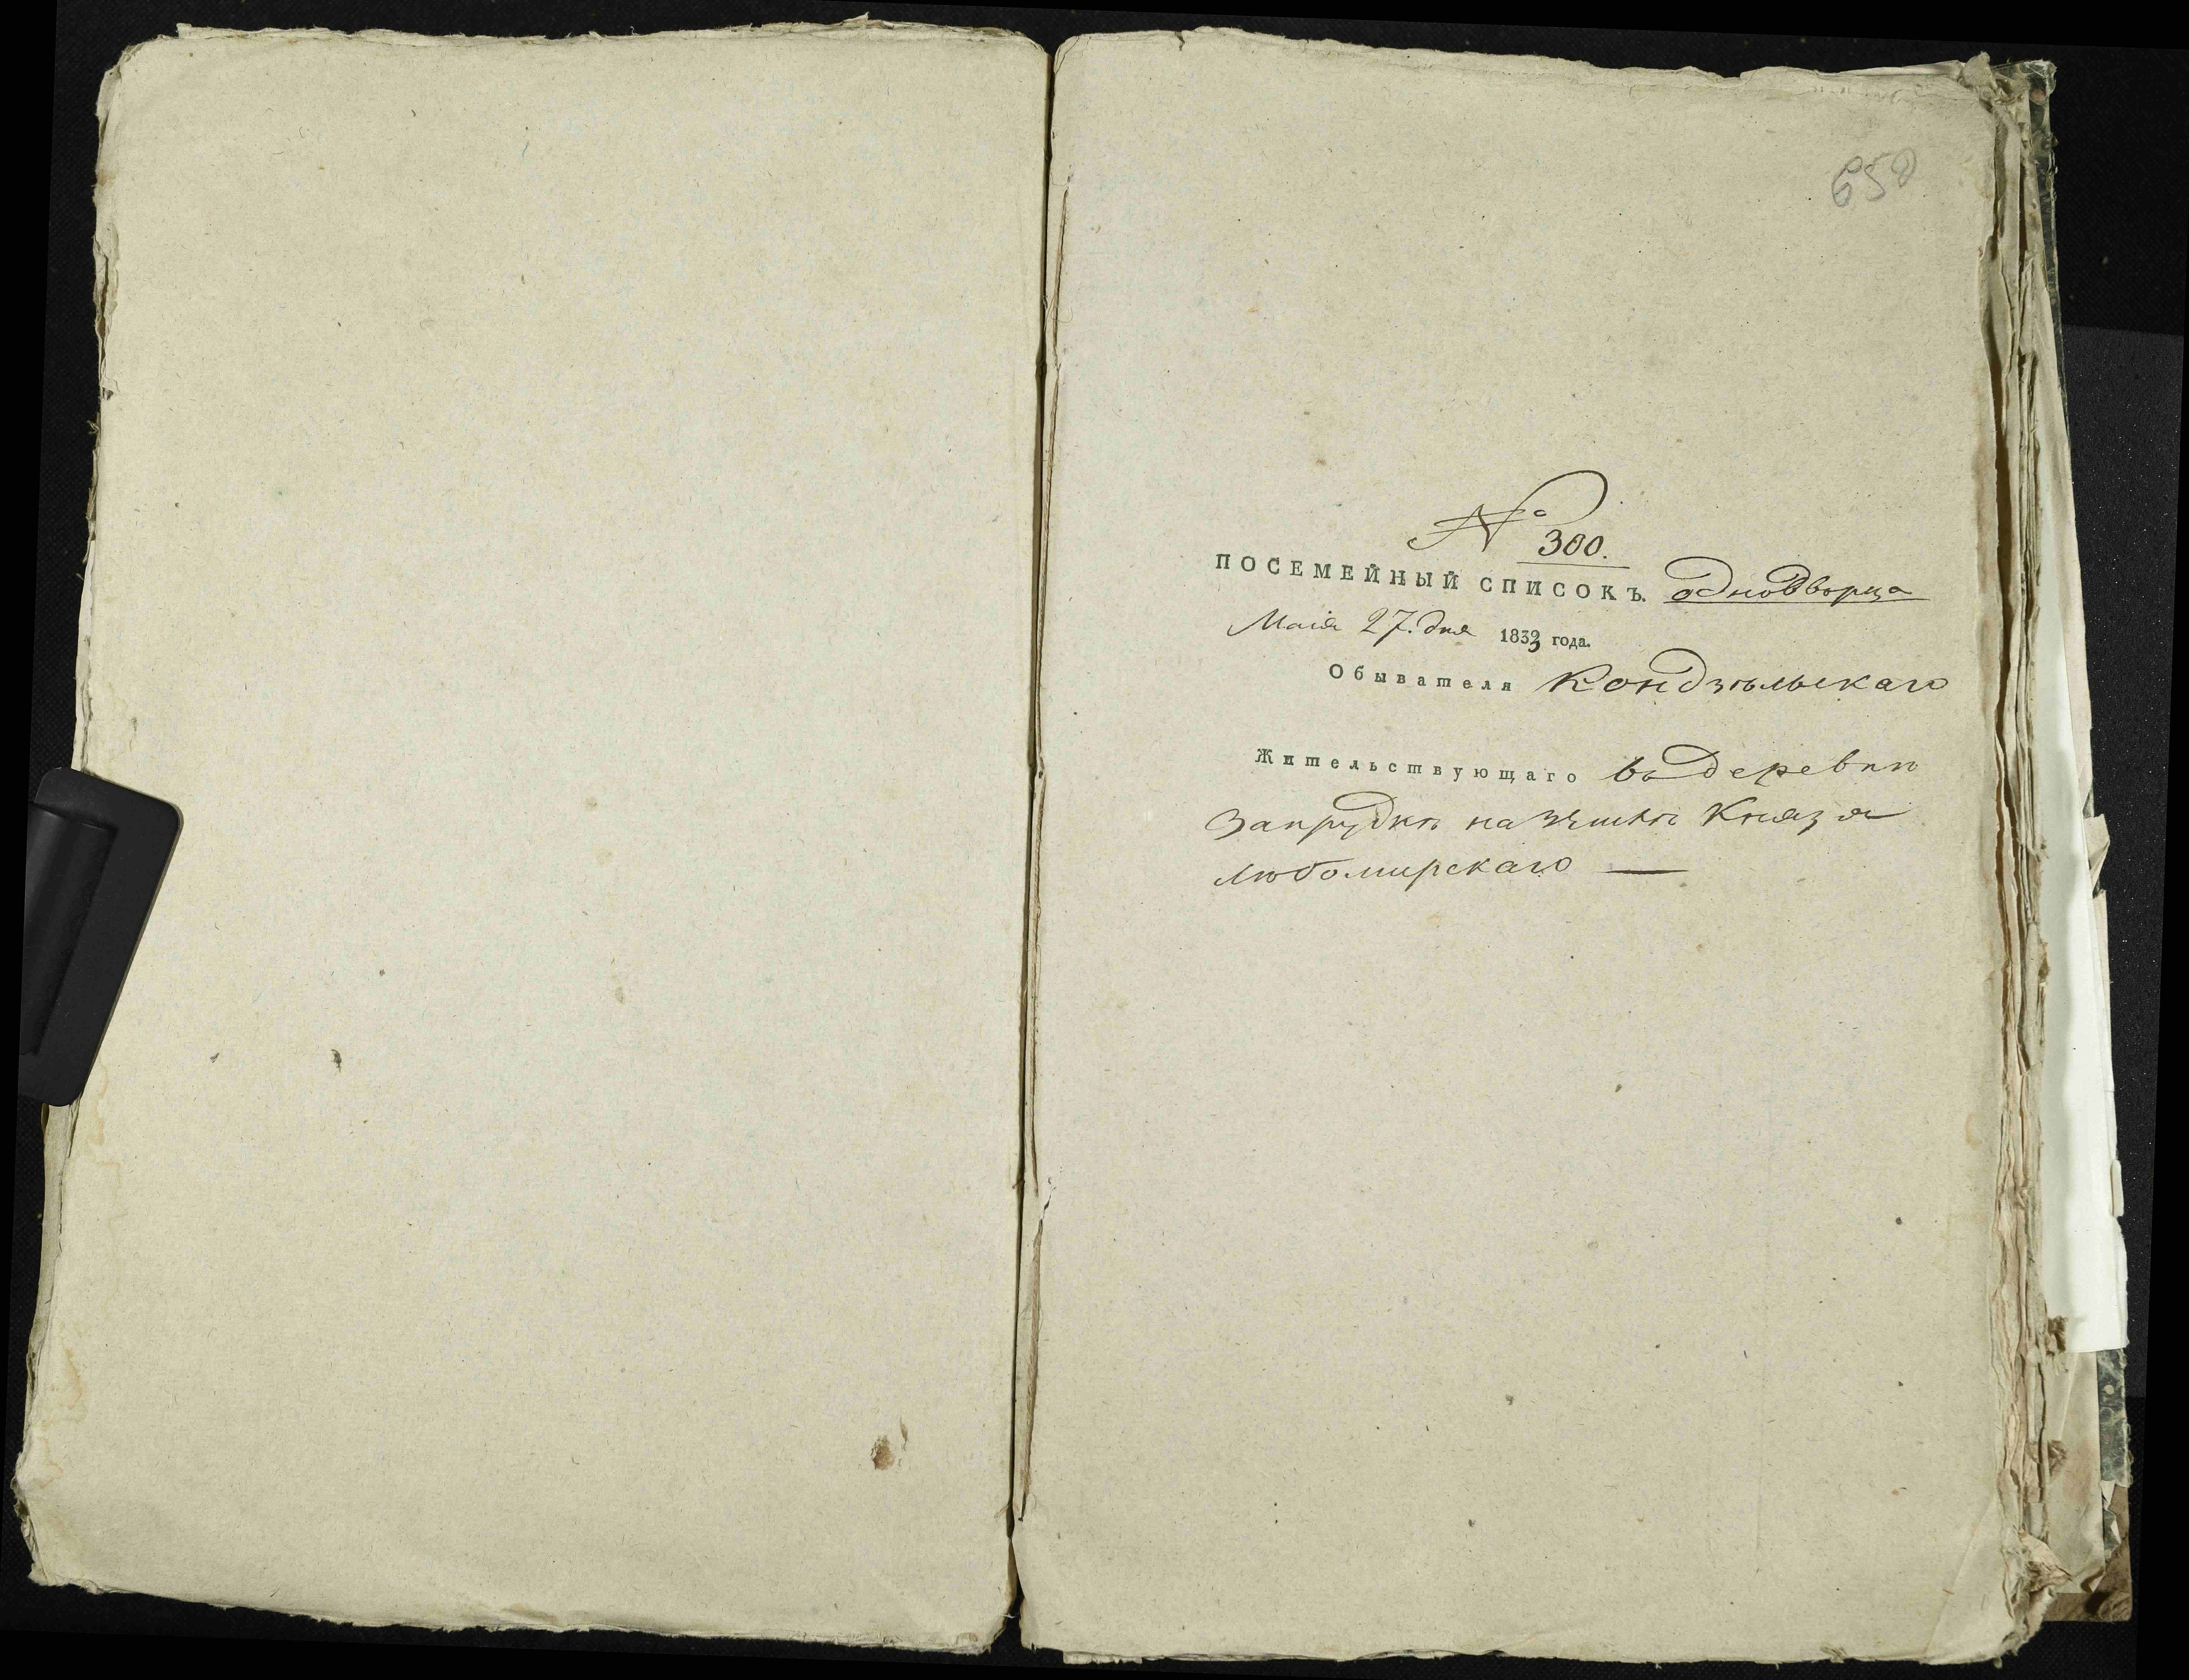 650
№ 300.
ПОСЕМЕЙНЫЙ СПИСОКЪ. однодворца
Маія 27. дня 1833 года.
Обывателя Кондзѣльскаго
Жительствующаго въ деревнѣ
Запрудкѣ на земли Князя
Любомирскаго —